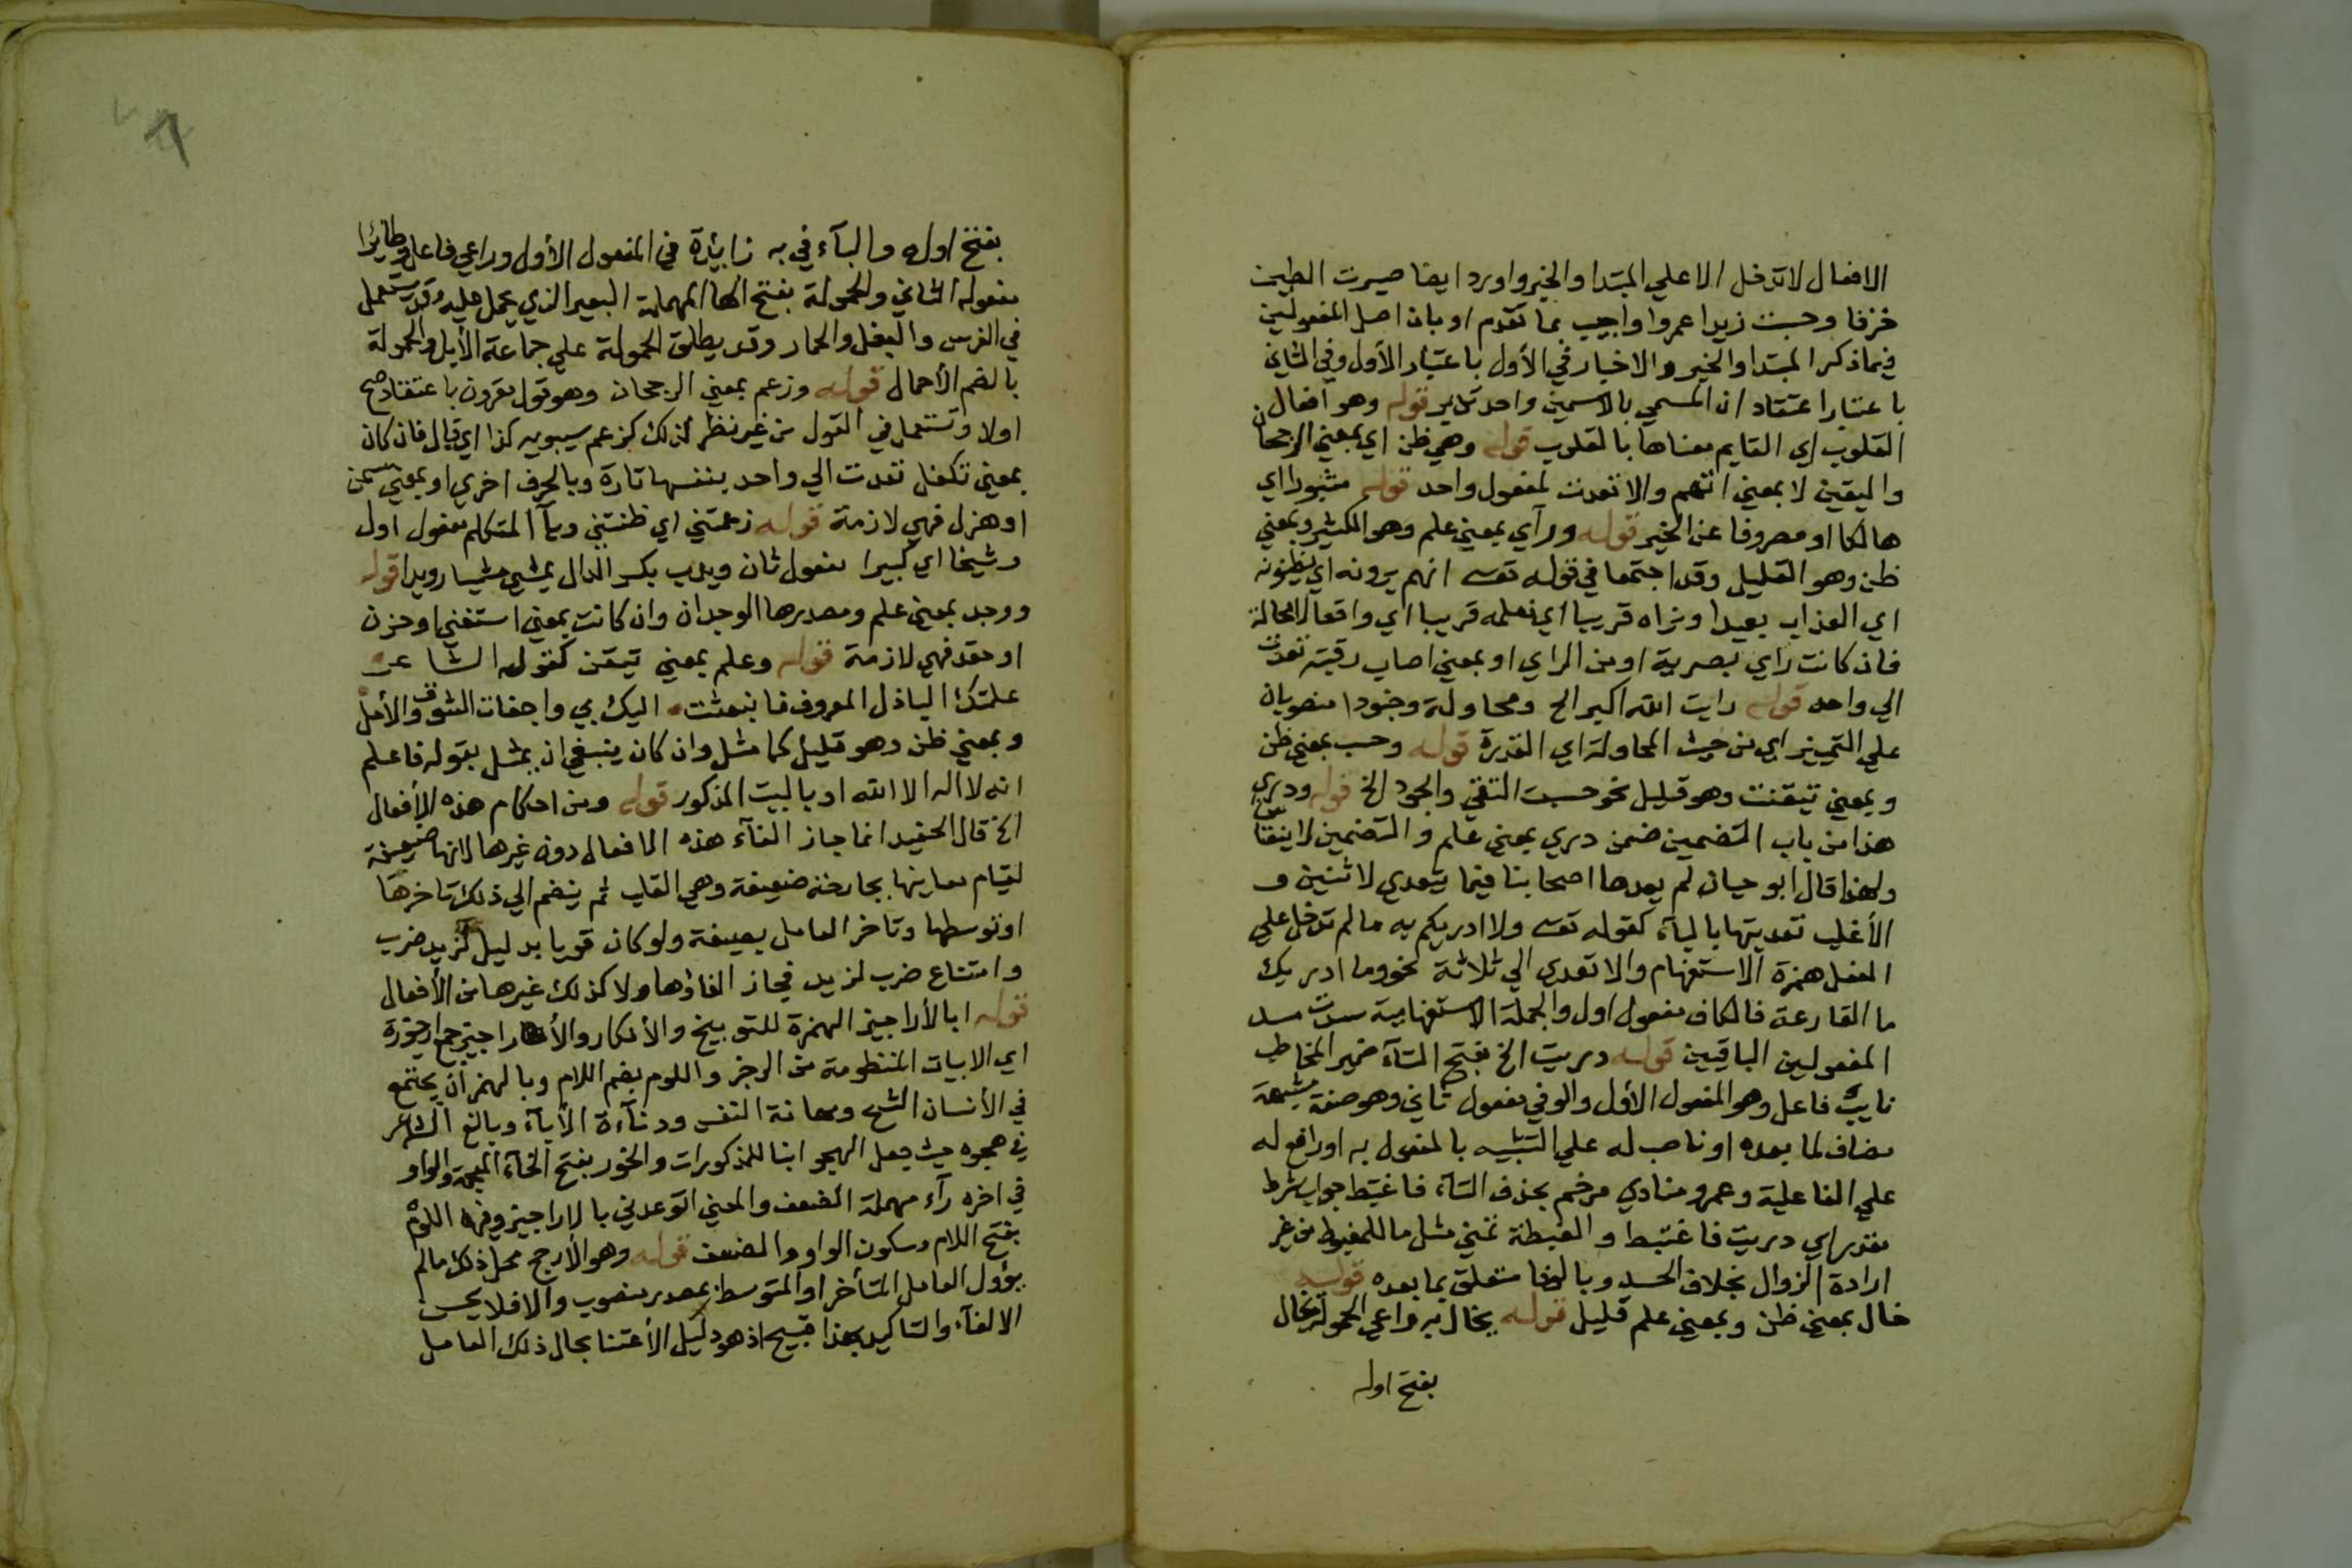 الافعال لا تدخل الا علي المبتدا والخبر واورد ايضا صيرت الطين
خزفا وحسبت زيدا عمروا واجيب بما تقدم او بان اصل المفعولين
فيما ذكر المبتدا والخبر والاخبار في الأول باعتبار الأول وفي الثاني
باعتبار اعتقاد ان المسمي بالاسمين واحد قوله وهو افعال
القلوب اي القايم معناها بالقلوب قوله وهي ظن اي بمعني الرجحان
واليقين لا بمعني اتهم والا تعدت لمفعول واحد قوله مثبورا اي
هالكا او مصروفا عن الخير قوله ورآي بمعني علم وهو الكثير وبمعني
ظن وهو القليل وقد اجتمعا في قوله تعـ انهم يرونه اي يظنونه
اي العذاب بعيدا ونراه قريبا اي نعلمه قريبا اي واقعا لامحالة
فان كانت راي بصرية او من الراي او بمعني اصاب رقبته تعدت
الي واحد قوله رايت الله اكبر الخ ومحاولة وجنودا منصوبان
علي التمييز اي من حيث المحاولة اي القدرة قوله وحسب بمعني ظن
وبمعني تيقنت وهو قليل نحو حسبت التقي والجود الخ قوله ودري
هذا من باب التضمين ضمن دري بمعني علم والتضمين لا ينقاس
ولهذا قال ابو حيان لم يعدها اصحابنا فيما يتعدي لاثنين و
الأغلب تعديتها بالبآء كقوله تعـ ولا ادريكم به مالم تدخل علي
الفعل همزة الاستفهام والا تعدي الي ثلاثة نحو وما ادريك
ما القارعة فالكاف مفعول اول والجملة الاستفهامية سدت مسد
المفعولين الباقيين قوله دريت الخ بفتح التآء ضمير المخاطب
نايب فاعل وهو المفعول الأول والوفي مفعول ثاني وهو صفة مشبهة
مضاف لما بعده او ناصب له علي التشبيه بالمفعول به او رافع له
علي الفاعلية وعمرو منادي مرخم بحذف التآء فاغتبط جواب شرط
مقدر اي دريت فاغتبط والغبطة تمني مثل ما للمغبوط من غير
ارادة الزوال بخلاف الحسد وبالوفا متعلق بما بعده قوله
خال بمعني ظن وبمعني علم قليل قوله يخال به راعي الحمولة يخال
بفتح اوله
بفتح اوله والبآء في به زايدة في المفعول الأول وراعي فاعل وطائرا
مفعوله الثاني والحمولة بفتح الحا المهملة البعير الذي يحمل عليه وقد يستعمل
في الفرس والبغل والحمار وقد يطلق الحمولة علي جماعة الأبل والحمولة
بالضم الأحمال قوله وزعم بمعني الرجحان وهو قول مقرون باعتقاد صح
اولا وتستعمل في القول من غير نظر لذلك كزعم سيبويه كذا اي قال فان كان
بمعني تكفل تعدت الي واحد بنفسها تارة وبالحرف اخري او بمعني سمن
او هزل فهي لازمة قوله زعمتني اي ظنتني ويآ المتكلم مفعول اول
وشيخا اي كبيرا مفعول ثان ويدب بكسر الدال يمشي مشيا رويدا قوله
ووجد بمعني علم ومصدرها الوجدان وان كانت بمعني استغني او حزن
او حقد فهي لازمة قوله وعلم بمعني تيقن كقوله الشاعر
علمتك الباذل المعروف فانبعثت اليك بي واجفات الشوق والأمل
وبمعني ظن وهو قليل كما مثل وان كان ينبغي ان يمثل بقوله فاعلم
انه لا اله الا الله او بالبيت المذكور قوله ومن احكام هذه الأفعال
الخ قال الحفيد انما جاز الغآء هذه الافعال دون غيرها لانها ضعيفة
لقيام معاينها بجارحة ضعيفة وهي القلب ثم ينضم الي ذلك تاخرها
او توسطها وتاخر العامل يضعفه ولو كان قويا بدليل لزيد ضرب
وامتناع ضرب لزيد فجاز الغاؤها ولا كذلك غيرها من الأفعال
قوله ابالأراجيز الهمزة للتوبيخ والأنكار والأراجيز جمع ارجوزة
اي الابيات المنظومة من الرجز واللوم بضم اللام وبالهمز ان يجتمع
في الأنسان الشح ومهانة النفس ودنآءة الأبآء وبالغ الشاعر
في هجوه حيث جعل المهجو ابنا للمذكورات والخور بفتح الخآء المعجمة والواو
في اخره رآء مهملة الضعف والمعني اتوعدني بالاراجيز وفيها اللوم
بفتح اللام وسكون الواو والضعف قوله وهو الأرجح محل ذلك مالم
يؤول العامل المتأخر او المتوسط بمصدر منصوب والا فلا يحسن
الالغآء والتاكيد بهذا قبيح اذ هو دليل الأعتنا بحال ذلك العامل